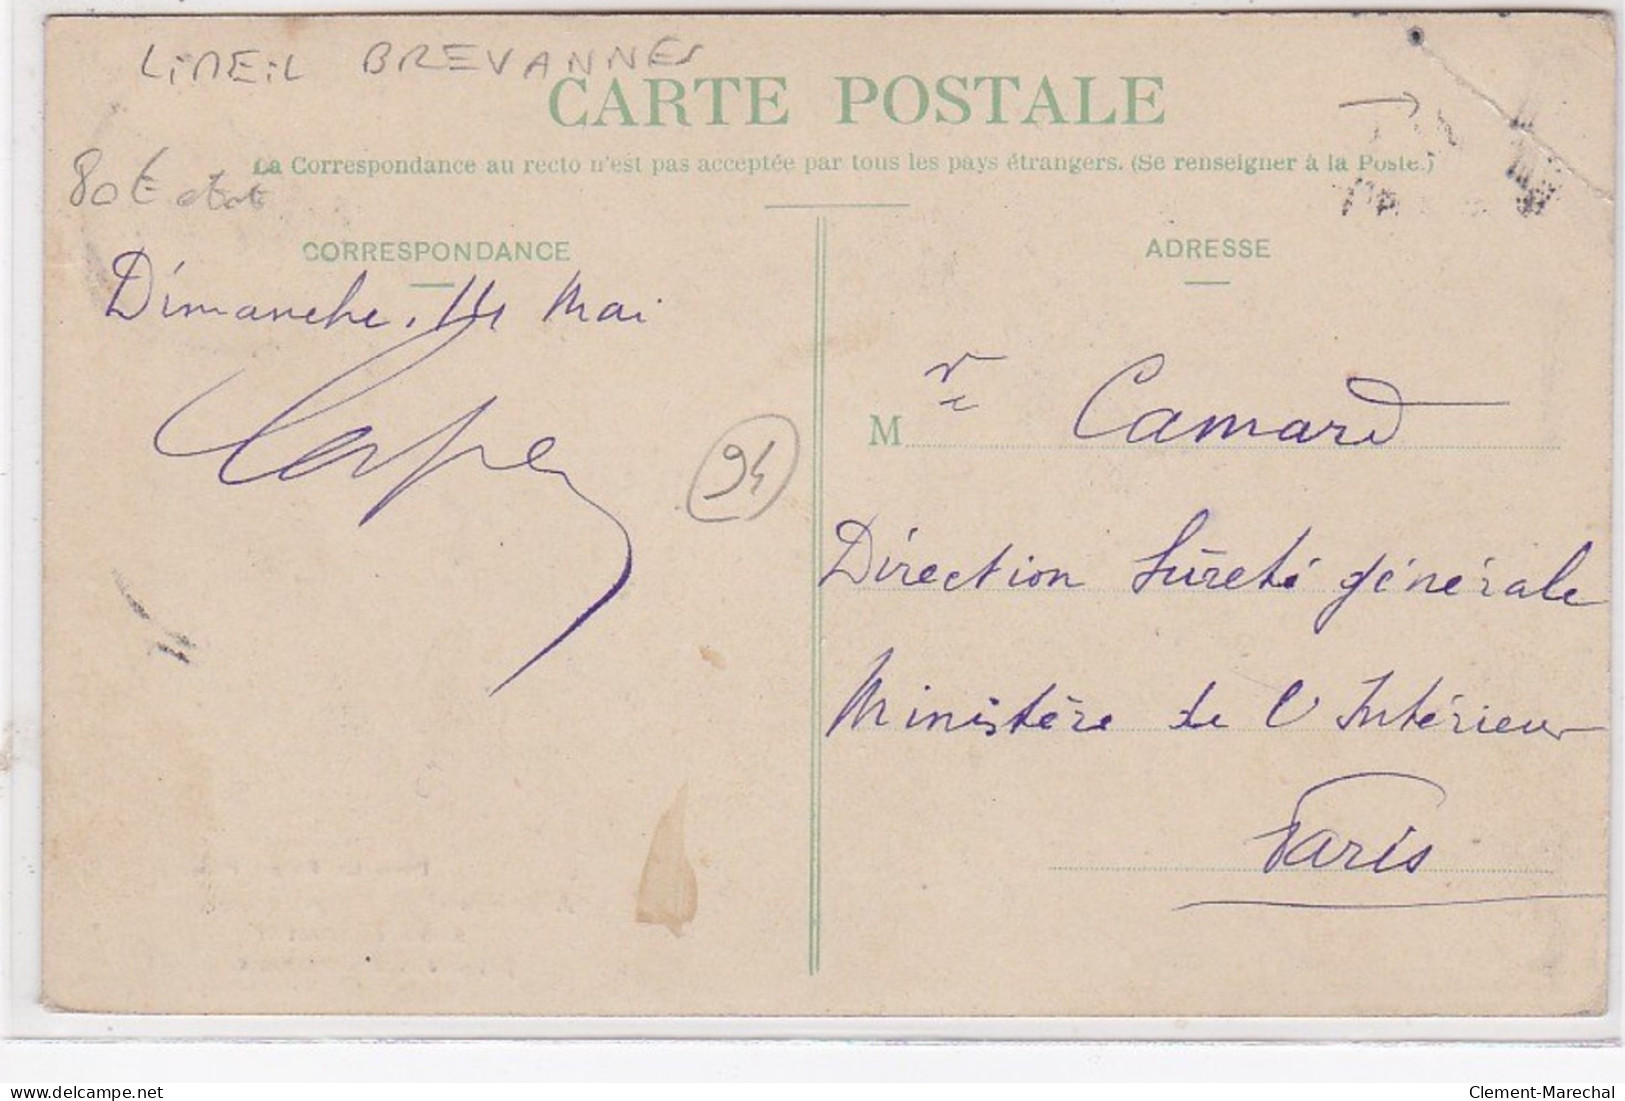 LiMEiL BREVANNES
CARTE POSTALE
La Correspondance au recto n'est pas acceptée par tous les pays étrangers. (Se renseigner à la Poste.)
80€ état
CORRESPONDANCE
ADRESSE
Dimanche, 14 Mai
94
M Camard
Direction Sûreté générale
Ministère de l'Intérieur
Paris
delcampe.net
Clement-Marechal